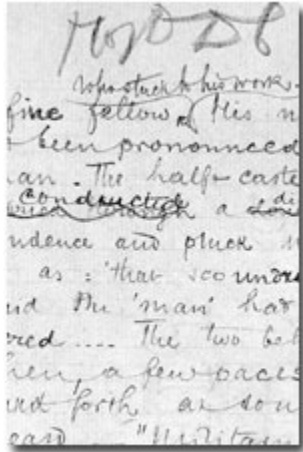 who stuck to his work.
fine fellow His
been pronounced
an. The half-caste
conducted
through a
ndence and pluck
as: 'that scoundre
nd the 'man' had
ered .... The two be
hen, a few paces
and forth as
"Militam